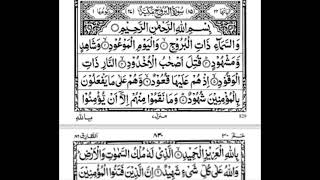 سورة البروج مكية
بسم الله الرحمن الرحيم
والسماء ذات البروج واليوم الموعود وشاهد
ومشهود قتل اصحب الاخدود النار ذات
الوقود اذ هم عليها قعود وهم على ما يفعلون
بالمؤمنين شهود وما نقموا منهم الا ان يؤمنوا
بالله
829
٨٣٠
بالله العزيز الحميد الذي له ملك السموت والارض
والله على كل شيء شهيد ان الذين فتنوا المؤمنين